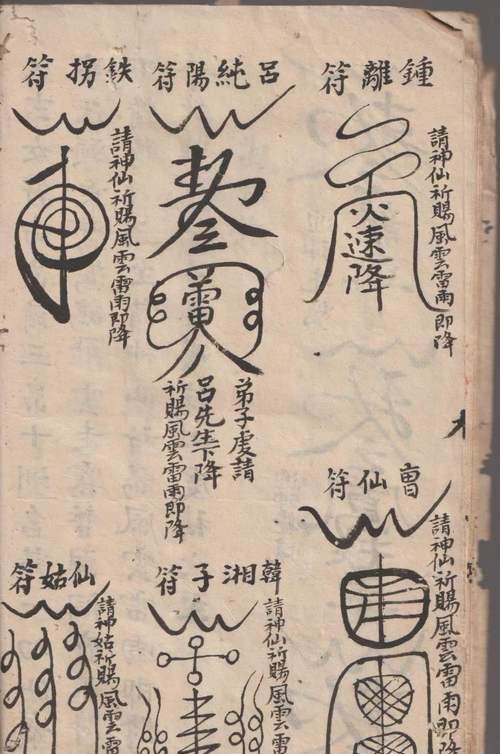 鍾離符
火速降
請神仙祈賜風雲雷雨即降
呂純陽符
弟子虔請
呂先生下降
祈賜風雲雷雨即降
鉄拐符
請神仙祈賜風雲雷雨即降
曹仙符
請神仙祈賜風雲雷雨即降
韓湘子符
請神仙祈賜風雲雷
仙姑符
請神姑祈賜風雲雷